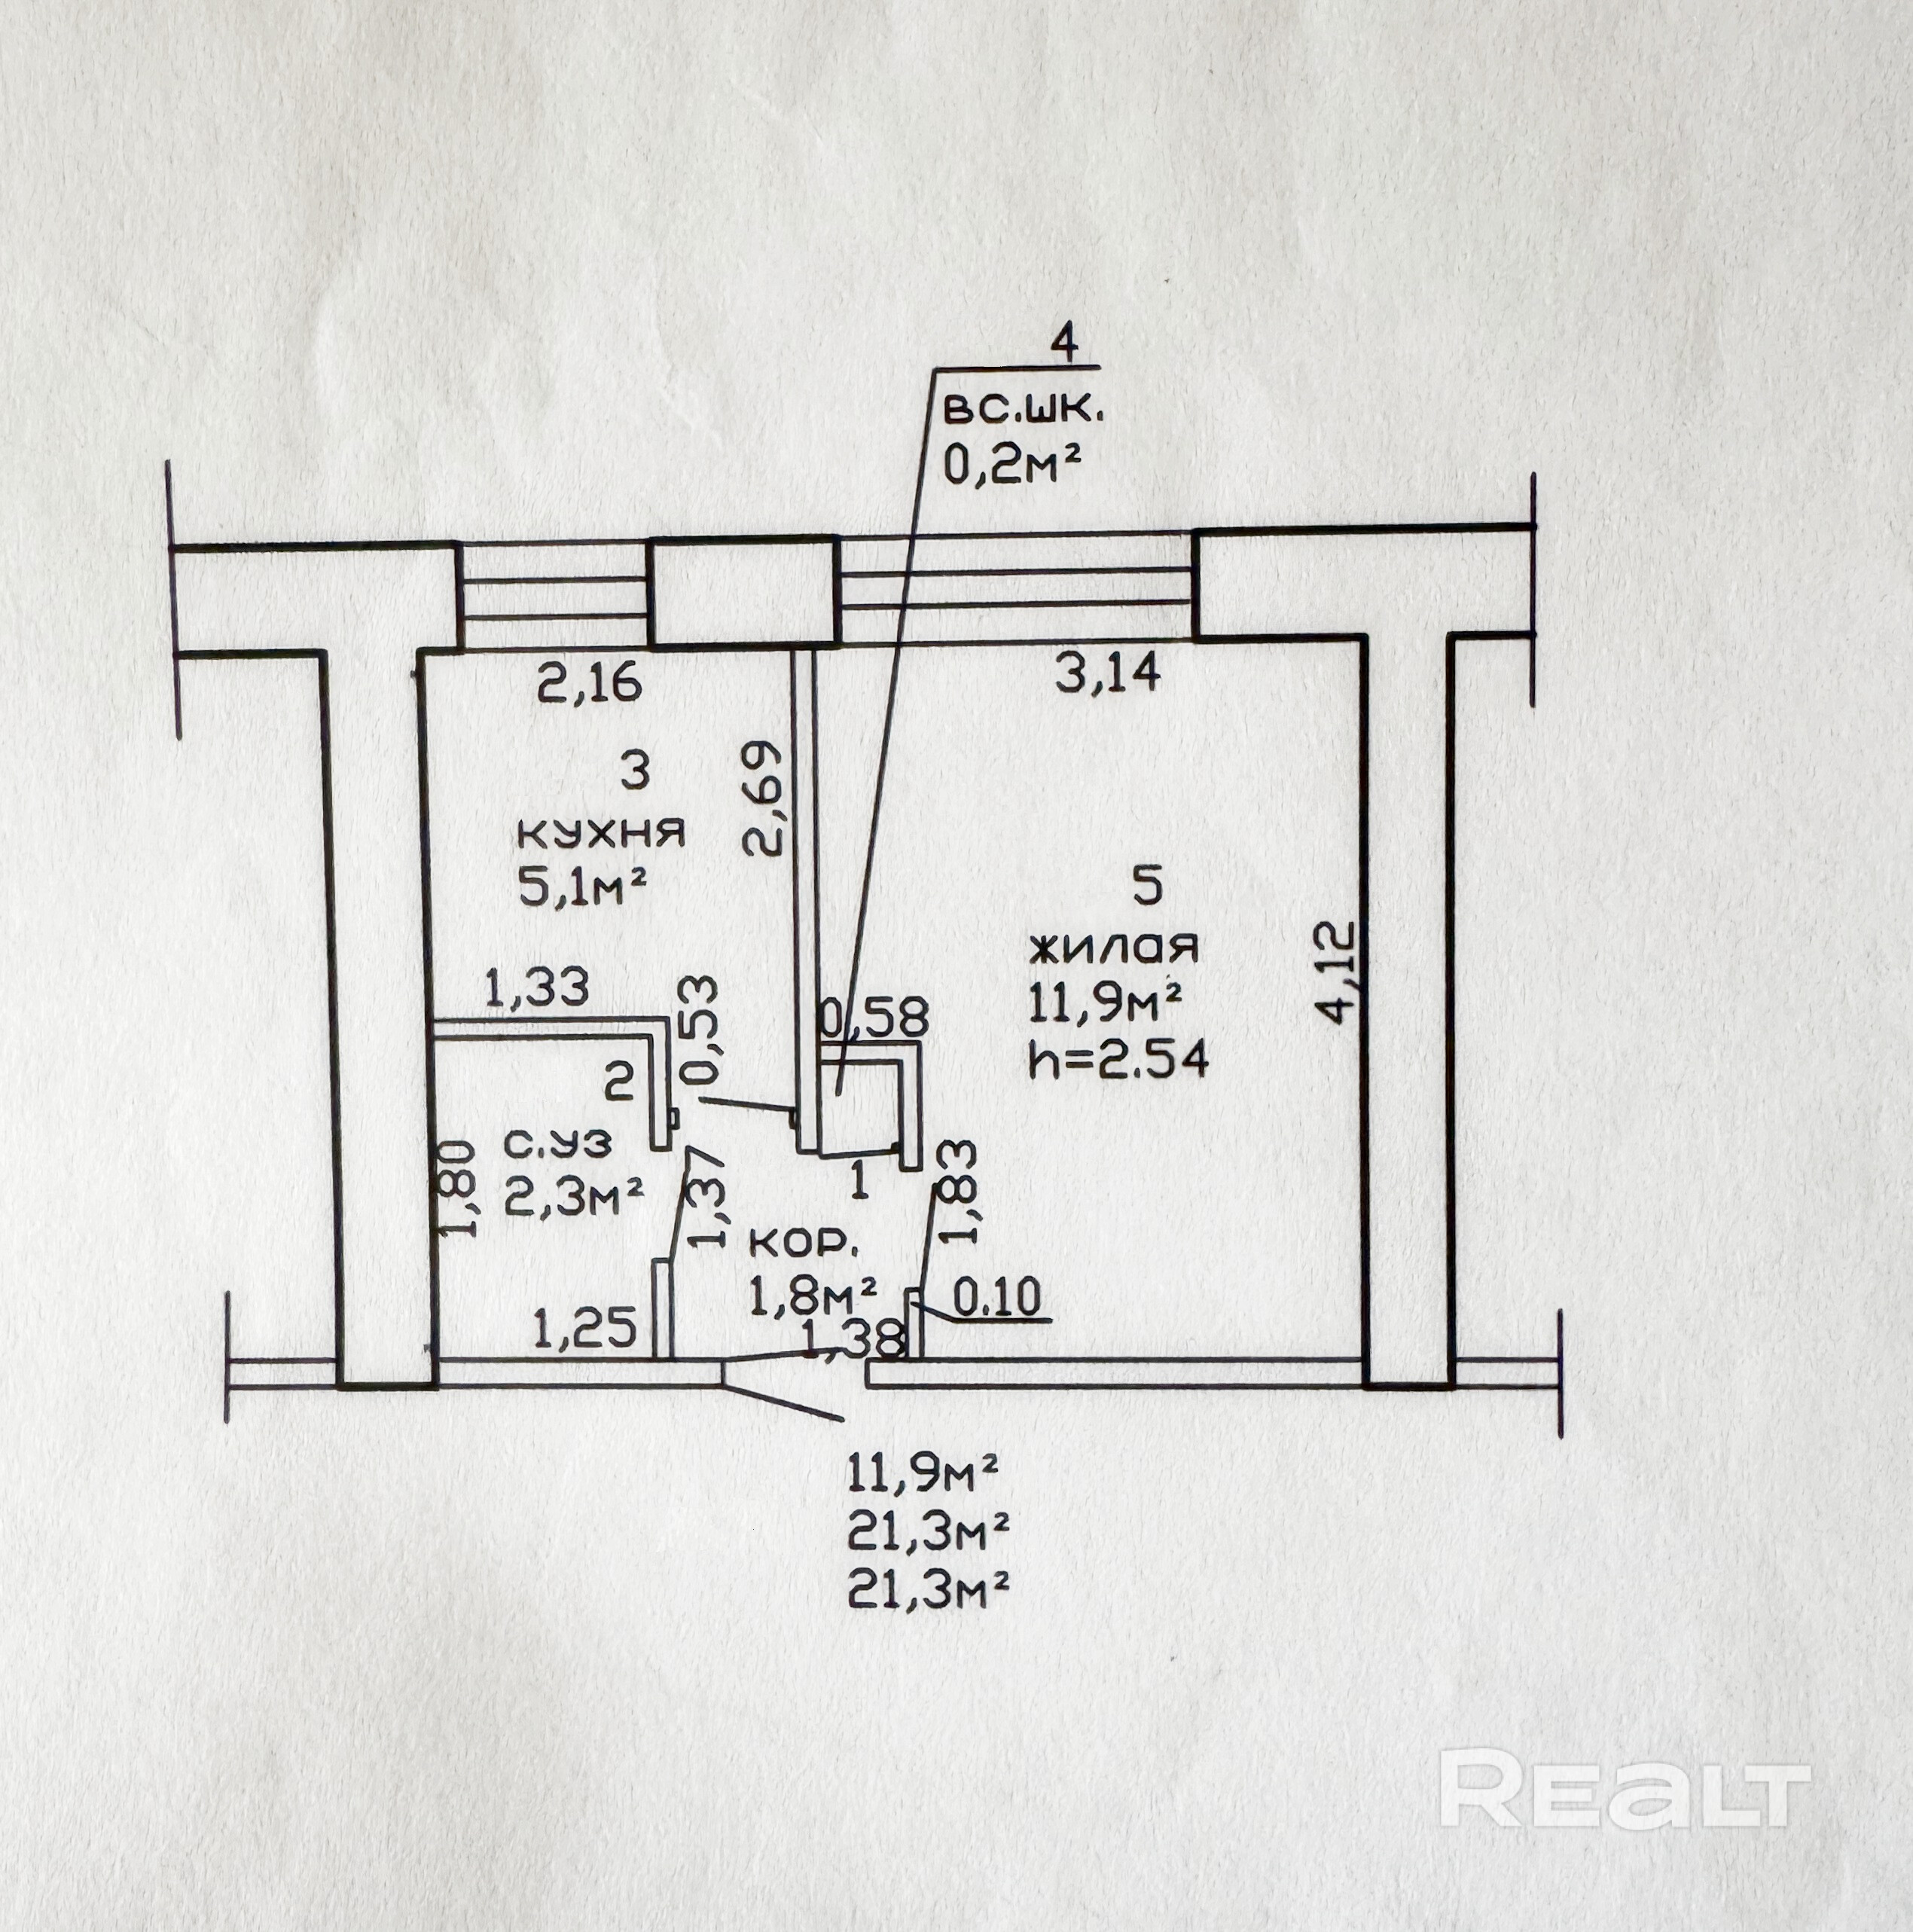 4
вс.шк.
0,2м²
2,16
3,14
3
кухня
5,1м²
2,69
5
жилая
11,9м²
h=2.54
4,12
1,33
0,53
0,58
2
с.уз
2,3м²
1,80
1,37
1
кор.
1,8м²
1,83
0.10
1,25
1,38
11,9м²
21,3м²
21,3м²
REALT